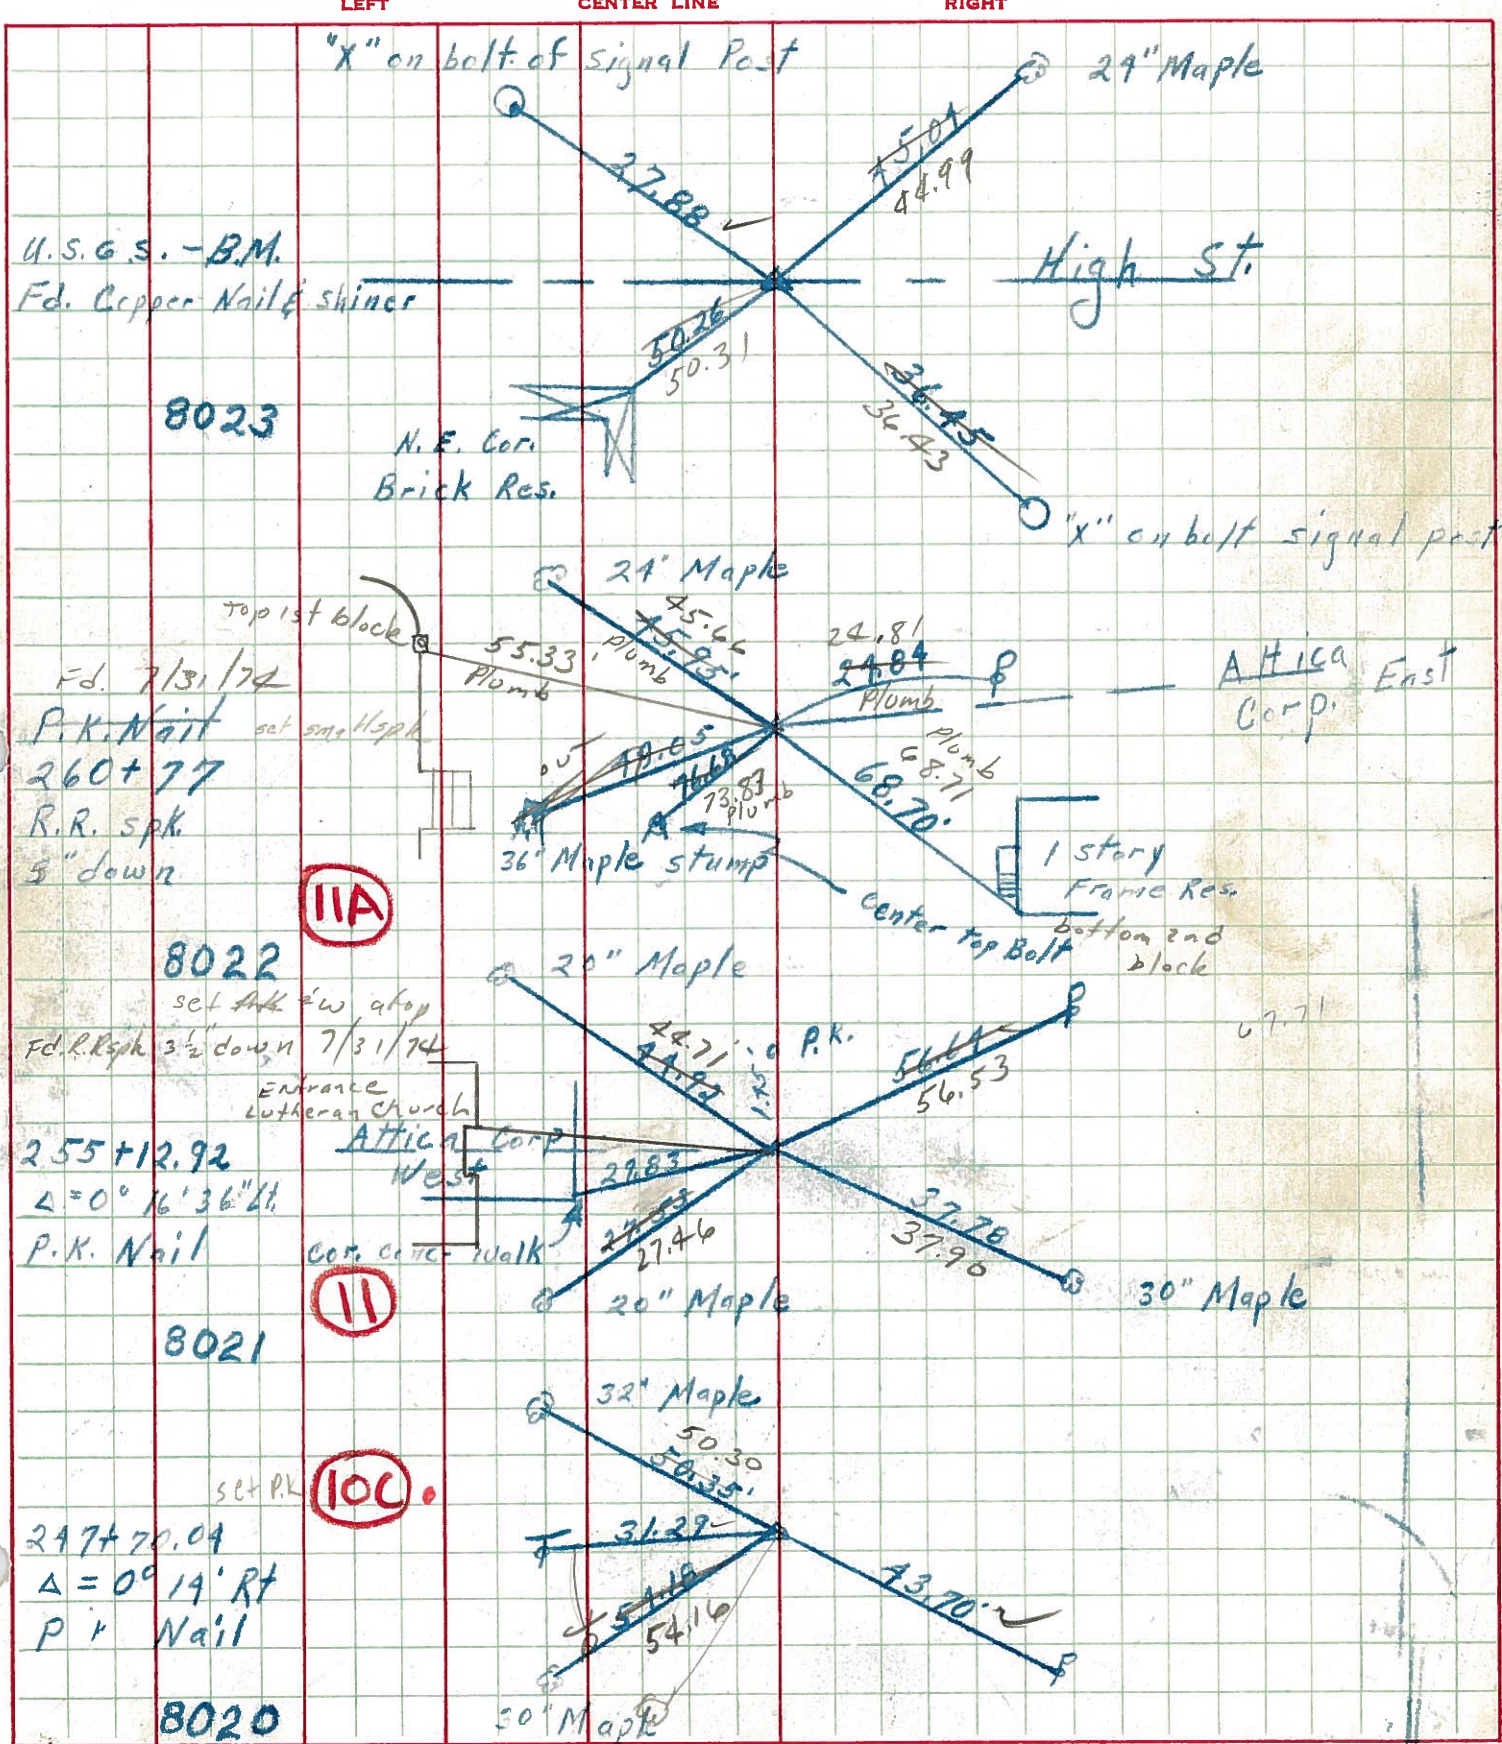 LEFT CENTER LINE RIGHT
"X" on bolt of signal Post
24" Maple
45.04
44.99
37.88
U.S.G.S. - B.M.
Fd. Copper Nail & shiner
High St.
50.26
50.31
36.45
36.43
8023
N.E. Cor.
Brick Res.
"X" on bolt signal post
24" Maple
Top 1st block
45.66
45.95'
Plumb
55.33'
Plumb
24.81
24.84
Plumb
Attica
Corp.
East
Fd. 7/31/74
P.K. Nail
set small spk
260+77
R.R. spk.
5" down
49.65
76.68
73.83
Plumb
Plumb
68.71
68.70'
36" Maple stump
1 story
Frame Res.
Center top Bolt
bottom 2nd
block
11A
8022
20" Maple
set
Fd. R.R spk 3½" down 7/31/74
44.71
44.92
1.25
P.K.
56.64
56.53
67.71
Entrance
Lutheran Church
Attica Corp
West
255+12.92
Δ=0° 16' 36" Lt.
P.K. Nail
29.83
27.53
27.46
37.78
37.90
Cor. conc walk
20" Maple
30" Maple
11
8021
32" Maple
50.30
50.35'
set P.K
10C.
247+70.04
Δ = 0° 14' Rt
P K Nail
31.29
54.18
54.16
43.70'
8020
30" Maple